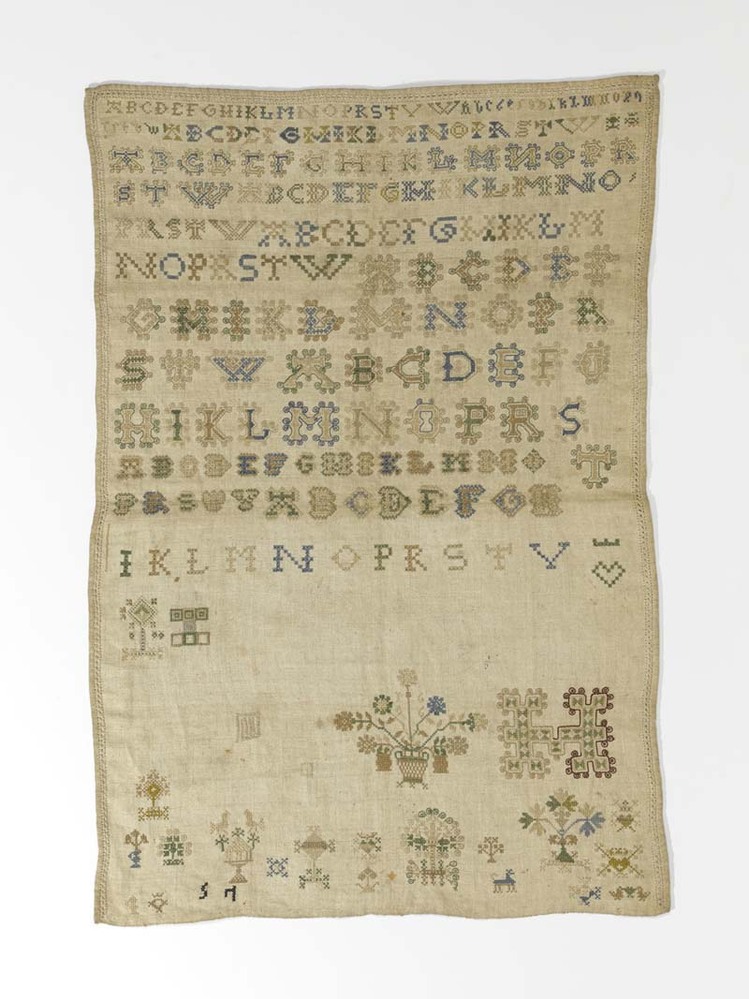 ABCDEFGHIKLMNOPRSTVW
ABCDEFGHIKLMNOPRSTVW
ABCDEFGHIKLMNOPR
STWABCDEFGHIKLMNO
PRSTWABCDEFGHIKLM
NOPRSTWABCDE
GHIKLMNOPR
STWABCDEFG
HIKLMNOPRS
ABCDEFGHIKLMN T
PRSABCDEFGH
IKLMNOPRSTV
H
S H